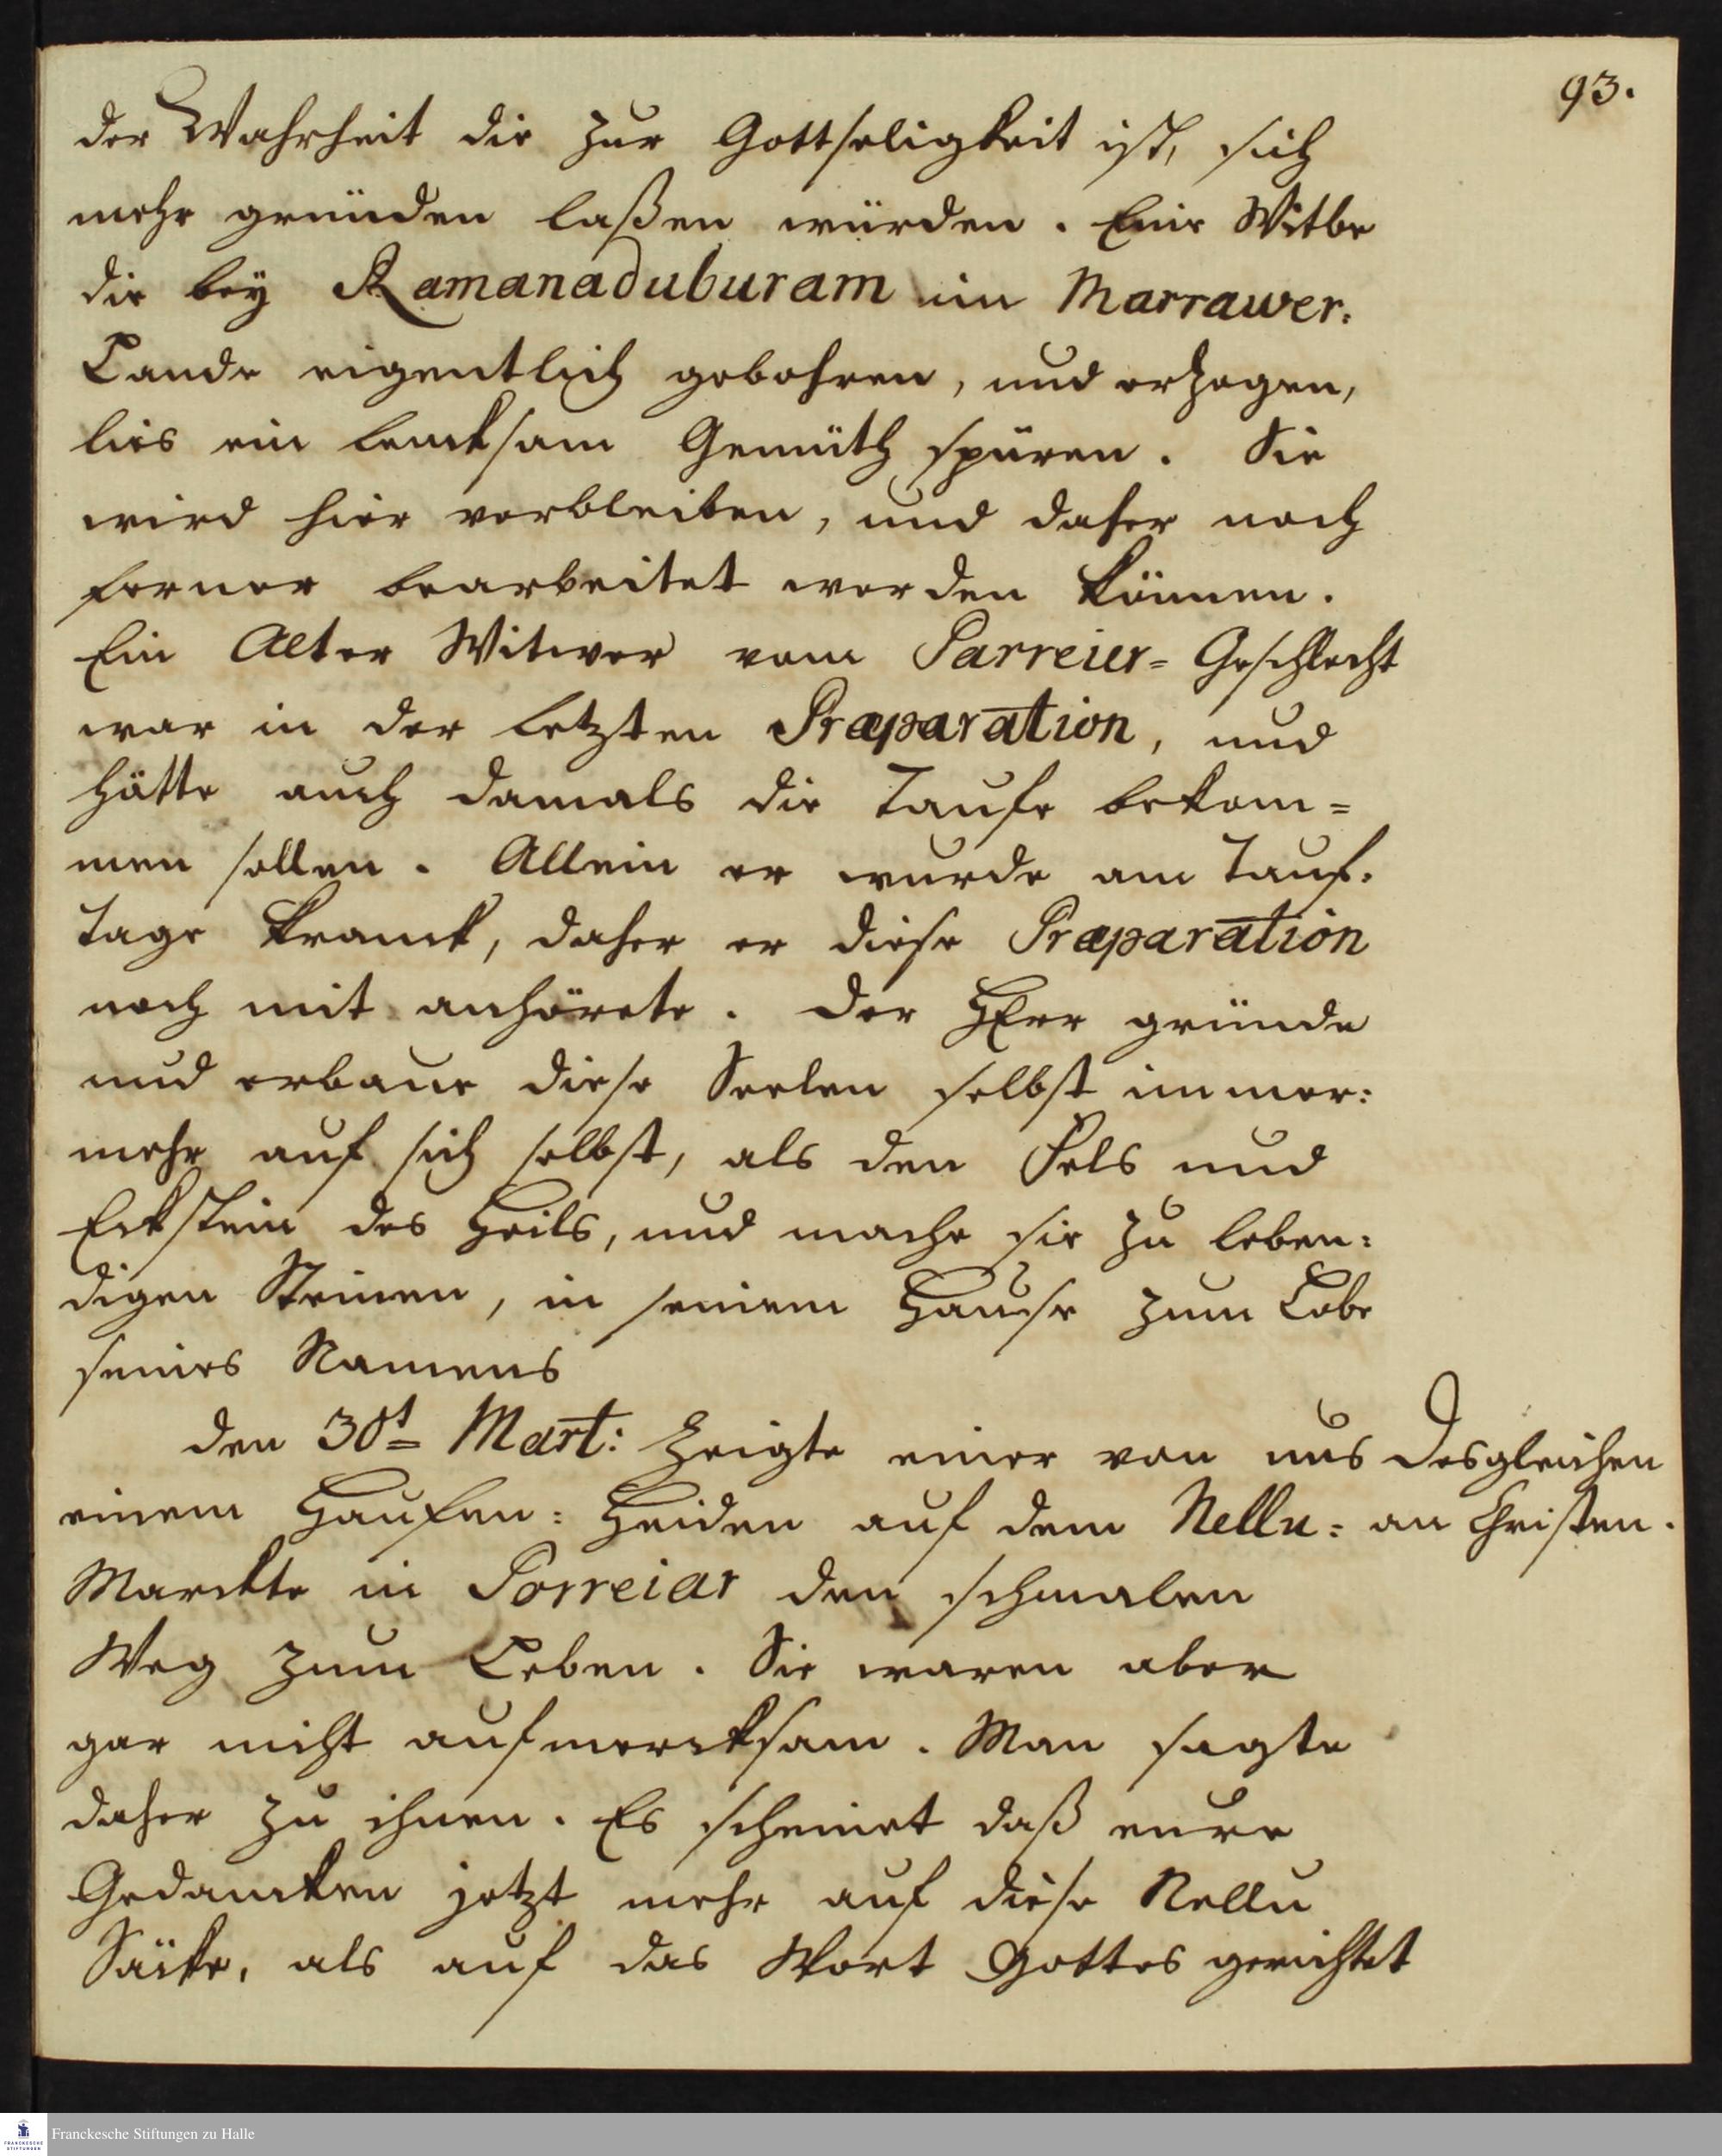 93.
der Wahrheit die zur Gottseligkeit ist, sich
mehr gründen laßen würden. Eine Witbe
die bey Ramanaduburam im Marrawer-
Lande eigentlich gebohren, und erzogen,
lies ein lencksam Gemüth spüren. Sie
wird hier verbleiben, und daher noch
ferner bearbeitet werden können.
Ein Alter Witwer vom Parreier= Geschlecht
war in der letzten Præparation, und
hätte auch damals die Taufe bekom=
men sollen. Allein er wurde am Tauf-
Tage kranck, daher er diese Præparation
noch mit anhörete. Der HErr gründe
und erbaue diese Seelen selbst immer:
mehr auf sich selbst, als den Fels und
Eckstein des Heils, und mache sie zu leben:
digen Steinen, in seinem Hause zum Lobe
seines Namens
den 30t= Mart: zeigte einer von uns
einem Haufen: Heiden auf dem Nellu:
Marckte in Porreiar den schmalen
Weg zum Leben. Sie waren aber
gar nicht aufmercksam. Man sagte
daher zu ihnen. Es scheinet daß eure
Gedancken jetzt mehr auf diese Nellu
Säcke, als auf das Wort Gottes gerichtet
Desgleichen
an Christen.
Franckesche Stiftungen zu Halle
FRANCKESCHE
STIFTUNGEN